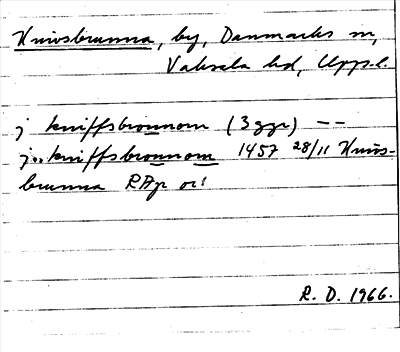 Knivsbrunna, by, Danmarks sn,
Vaksala hd, Upps.l.
j kniffsbronnom (3 ggr) --
j.. kniffsbronnom 1457 28/11 Knivs-
brunna RAp or!
R. D. 1966.